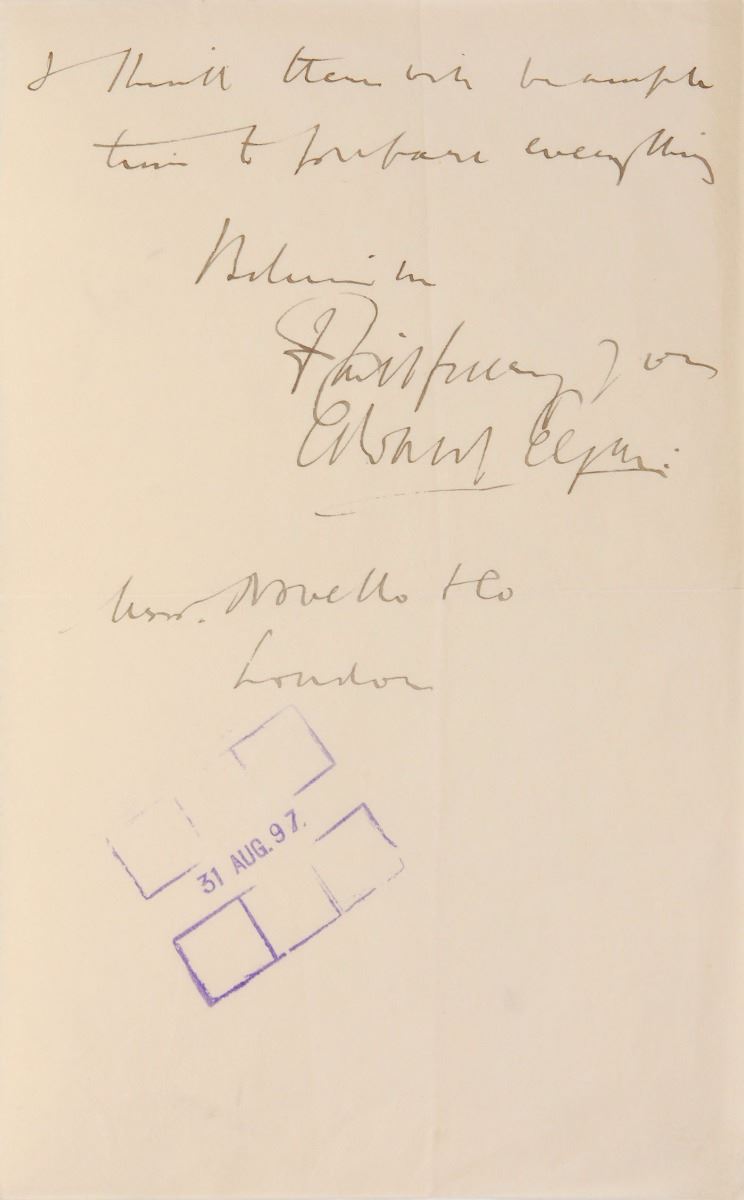 I think there will be ample
time to prepare everything
Believe me
Faithfully yours
Edward Elgar.
Messrs. Novello & Co
London
31 AUG. 97.